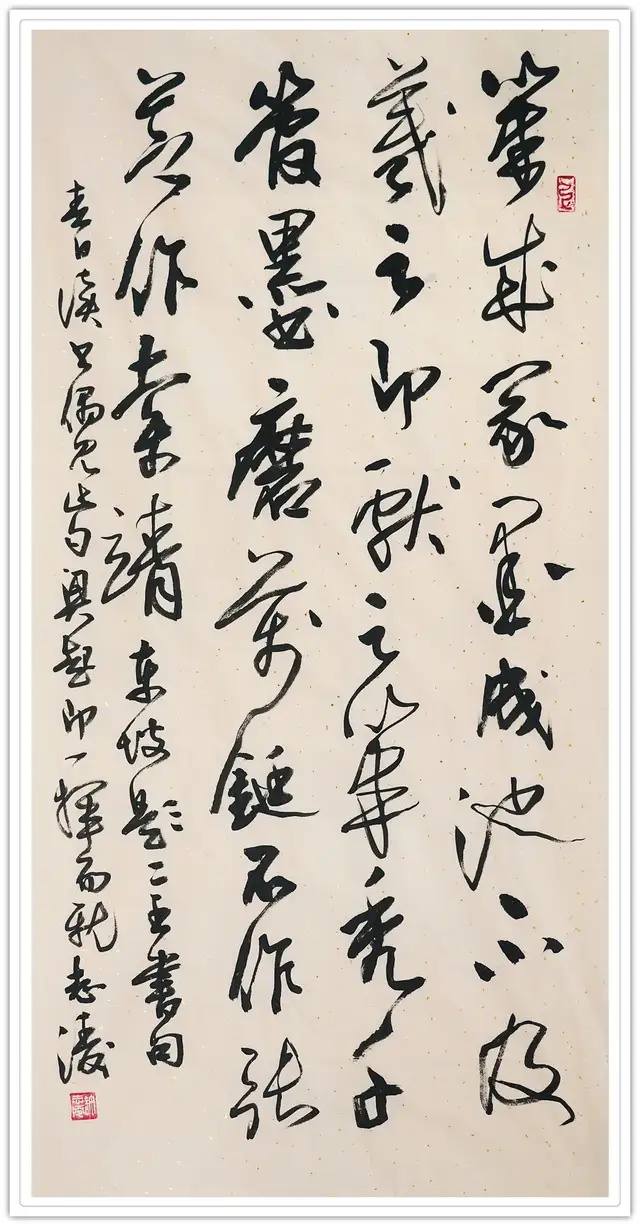 筆成冢墨成池不及
羲之即献之筆秃千
管墨磨萬鋌不作張
芝作索靖 东坡题二王書句
春日读书偶见此句興起即一揮而就志